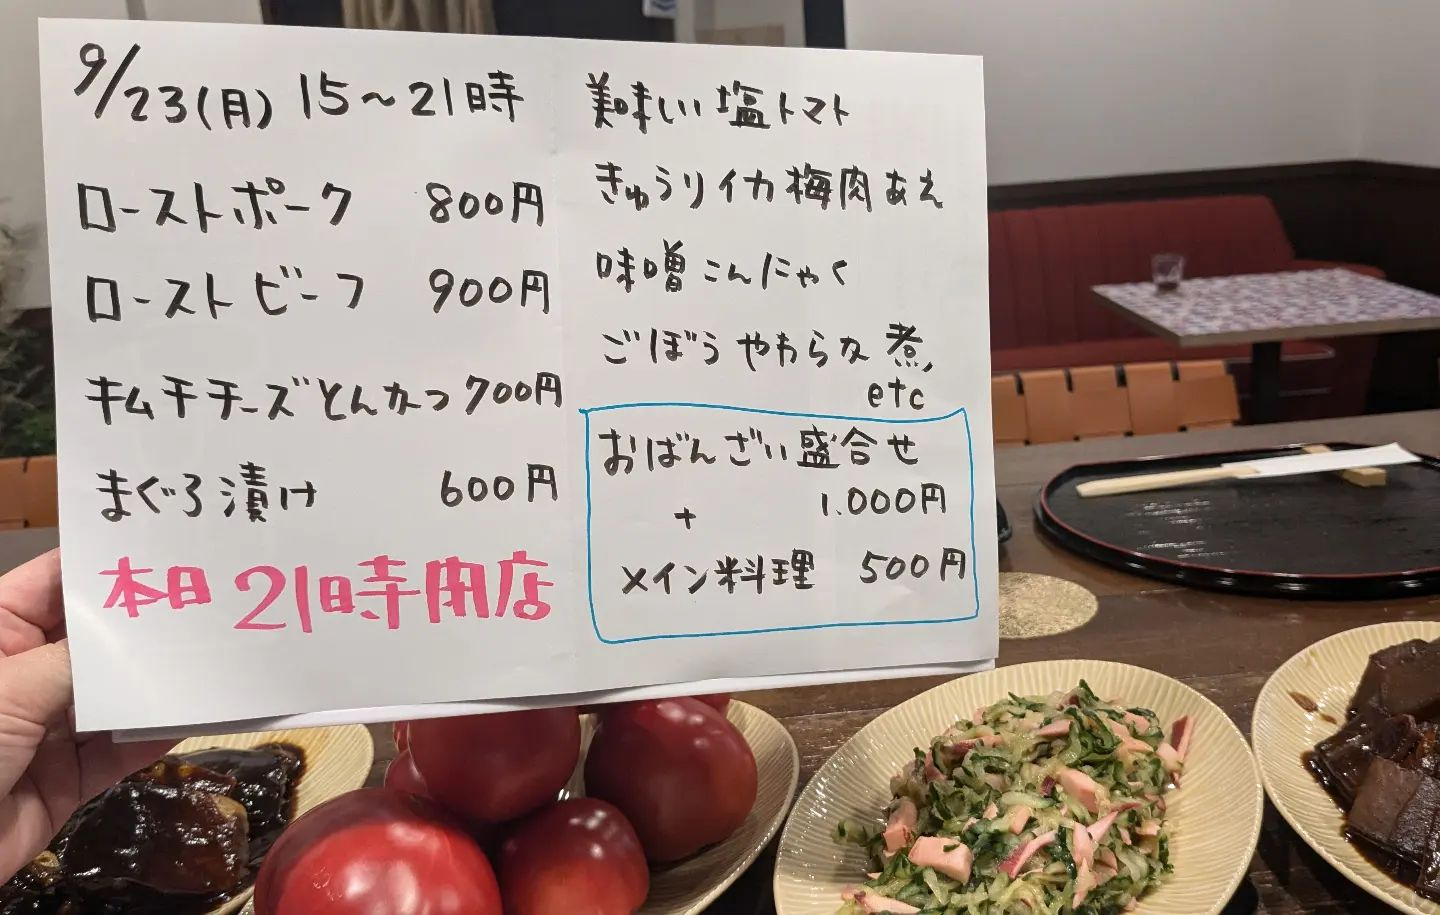 9/23(月) 15〜21時
ローストポーク 800円
ローストビーフ 900円
キムチチーズとんかつ 700円
まぐろ漬け 600円
本日21時閉店
美味しい塩トマト
きゅうりイカ梅肉あえ
味噌こんにゃく
ごぼうやわらか煮,
etc
おばんざい盛合せ
1.000円
+
メイン料理 500円